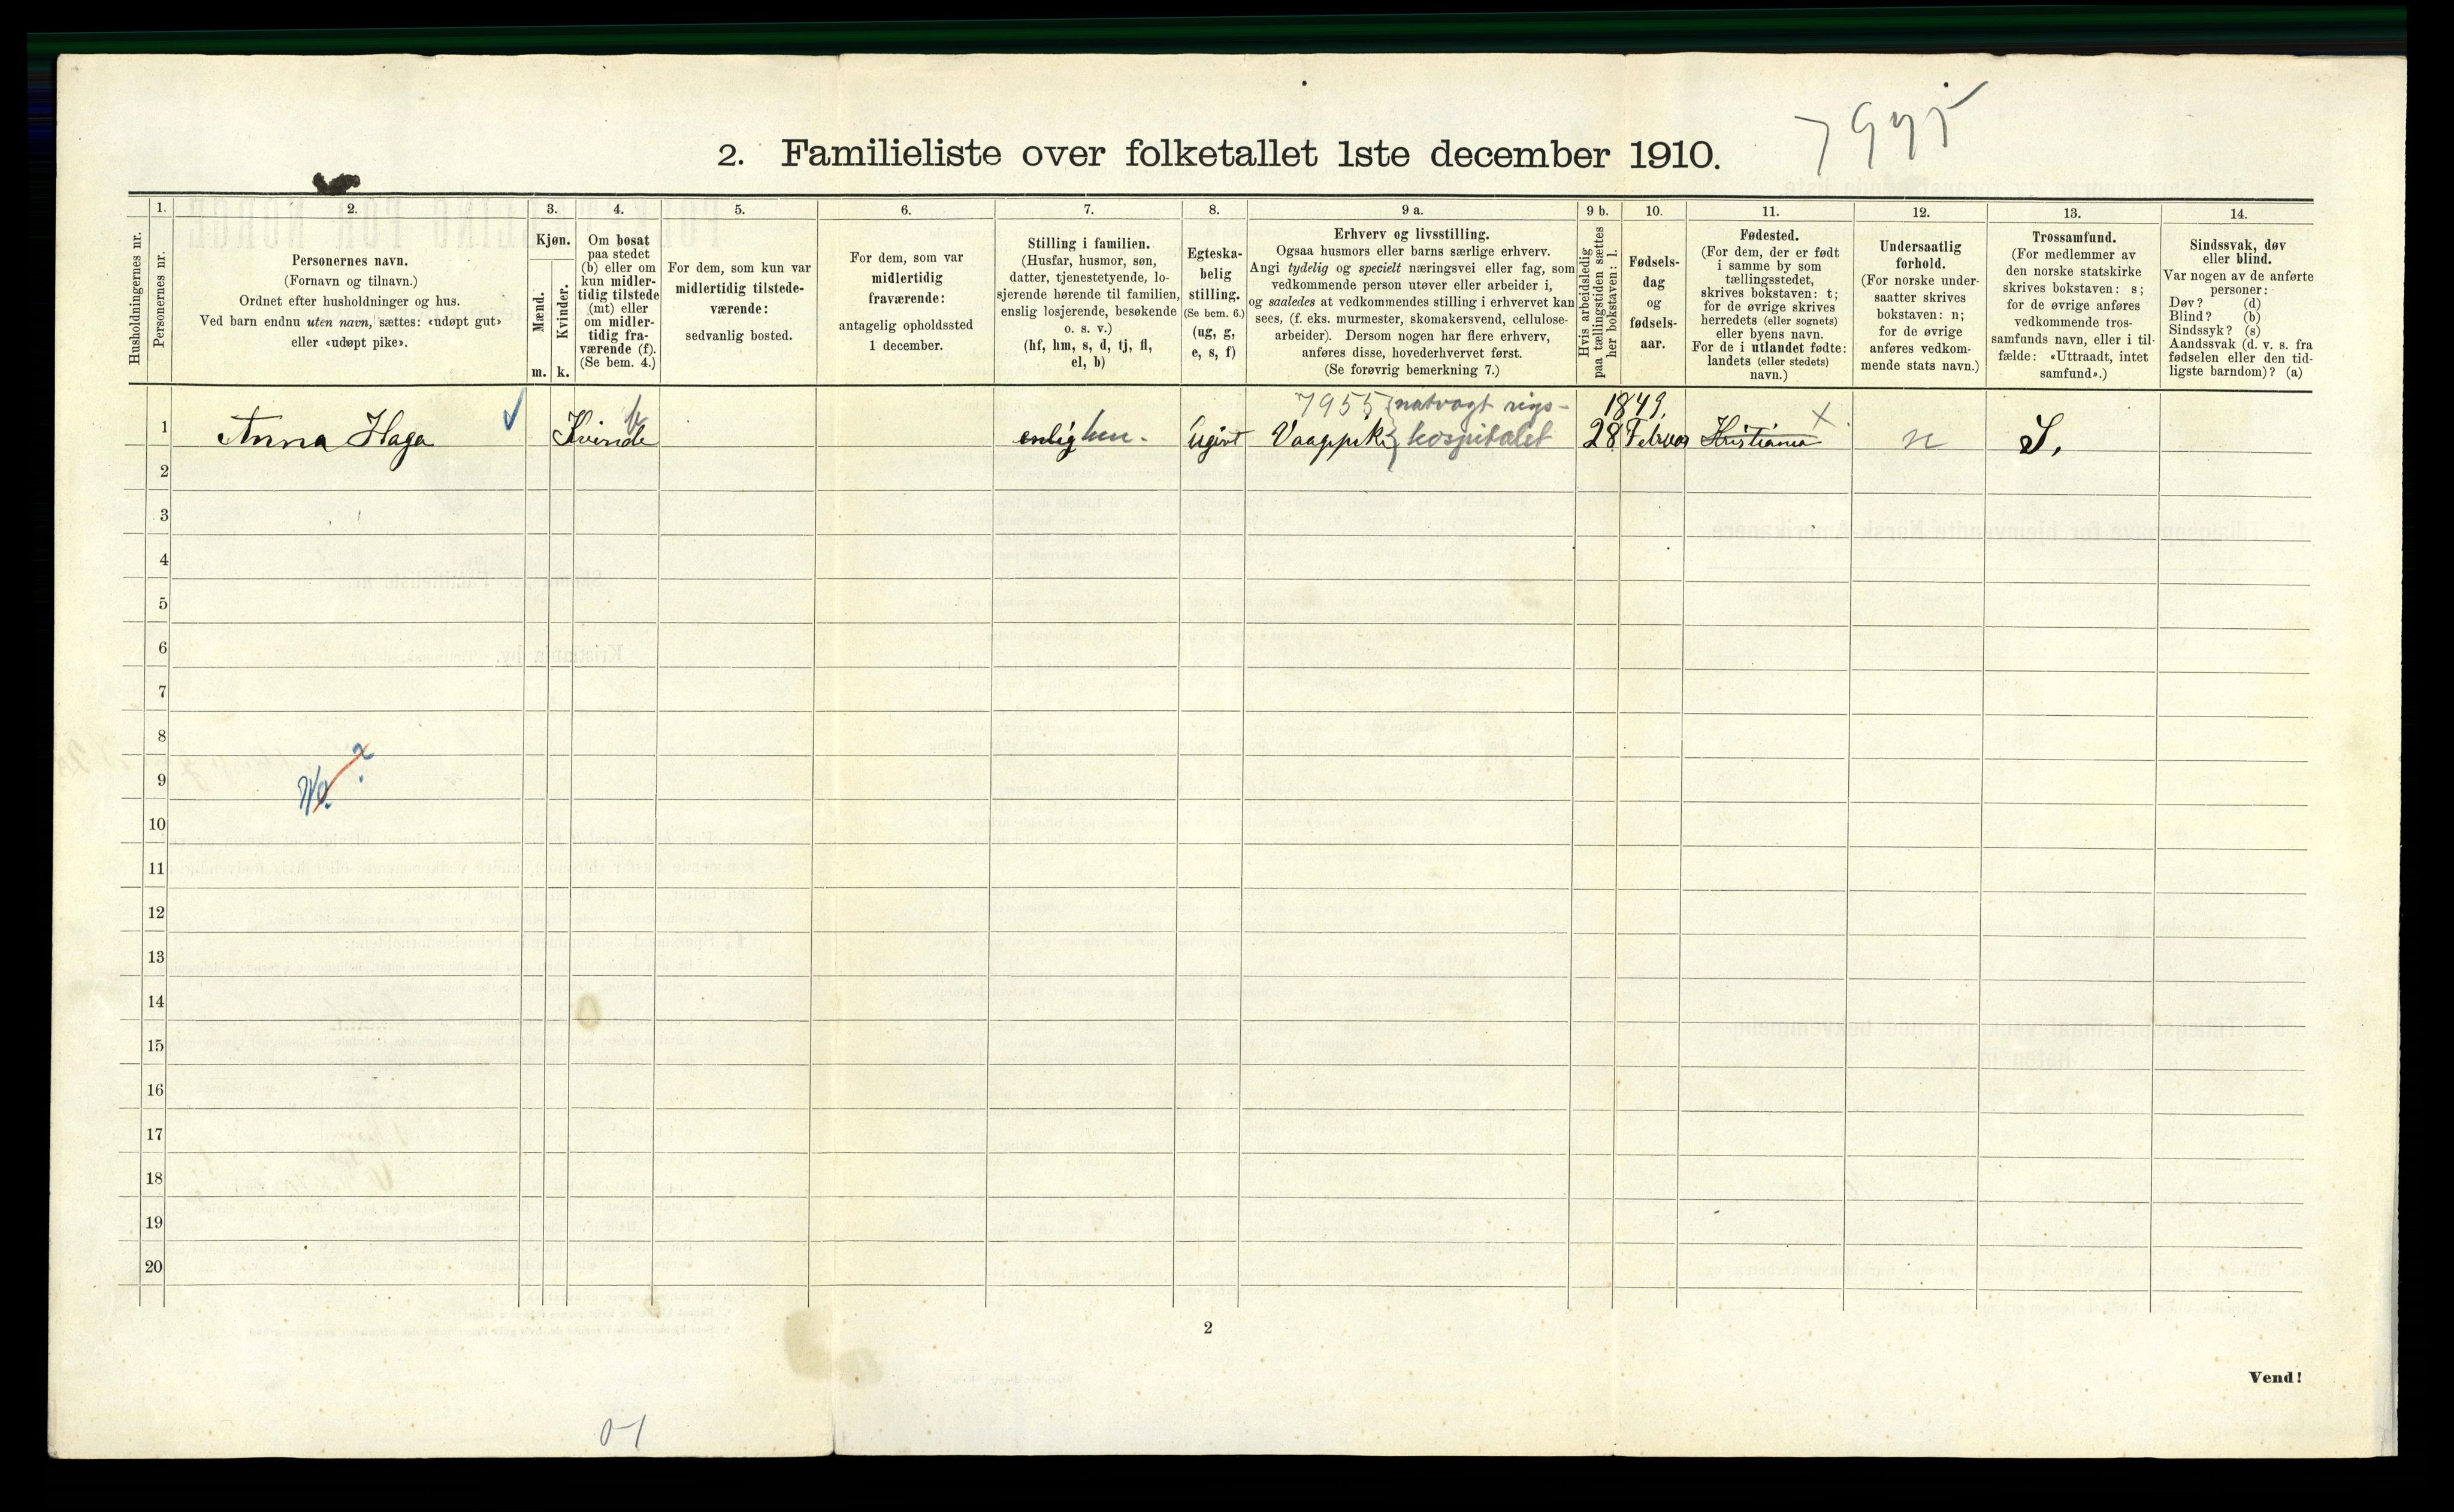 2. Familieliste over folketallet 1ste december 1910.
Husholdningernes nr.
1.
Personernes nr.
2.
Personernes navn.
(Fornavn og tilnavn.)
Ordnet efter husholdninger og hus.
Ved barn endnu uten navn, sættes: «udøpt gut»
eller «udøpt pike».
3.
Kjøn.
Mænd.
Kvinder.
m.
k.
4.
Om bosat
paa stedet
(b) eller om
kun midler-
tidig tilstede
(mt) eller
om midler-
tidig fra-
værende (f).
(Se bem. 4.)
5.
For dem, som kun var
midlertidig tilstede-
værende:
sedvanlig bosted.
6.
For dem, som var
midlertidig
fraværende:
antagelig opholdssted
1 december.
7.
Stilling i familien.
(Husfar, husmor, søn,
datter, tjenestetyende, lo-
sjerende hørende til familien,
enslig losjerende, besøkende
o. s. v.)
(hf, hm, s, d, tj, fl,
el, b)
8.
Egteska-
belig
stilling.
(Se bem. 6.)
(ug, g,
e, s, f)
9 a.
Erhverv og livsstilling.
Ogsaa husmors eller barns særlige erhverv.
Angi tydelig og specielt næringsvei eller fag, som
vedkommende person utøver eller arbeider i,
og saaledes at vedkommendes stilling i erhvervet kan
sees, (f. eks. murmester, skomakersvend, cellulose-
arbeider). Dersom nogen har flere erhverv,
anføres disse, hovederhvervet først.
(Se forøvrig bemerkning 7.)
9 b.
Hvis arbeidsledig
paa tællingstiden sættes
her bokstaven: l.
10.
Fødsels-
dag
og
fødsels-
aar.
11.
Fødested.
(For dem, der er født
i samme by som
tællingsstedet,
skrives bokstaven: t;
for de øvrige skrives
herredets (eller sognets)
eller byens navn.
For de i utlandet fødte:
landets (eller stedets)
navn.)
12.
Undersaatlig
forhold.
(For norske under-
saatter skrives
bokstaven: n;
for de øvrige
anføres vedkom-
mende stats navn.)
13.
Trossamfund.
(For medlemmer av
den norske statskirke
skrives bokstaven: s;
for de øvrige anføres
vedkommende tros-
samfunds navn, eller i til-
fælde: «Uttraadt, intet
samfund».)
14.
Sindssvak, døv
eller blind.
Var nogen av de anførte
personer:
Døv? (d)
Blind? (b)
Sindssyk? (s)
Aandssvak (d. v. s. fra
fødselen eller den tid-
ligste barndom)? (a)
7955 natvagt rigs- 1849.
1 Anna Haga Kvinde b enlig Ugivt hospitalet 28 Februar Kristiania X n S.
2
3
4
5
6
7
8
9
10
11
12
13
14
15
16
17
18
19
20
2
Vend!
0-1